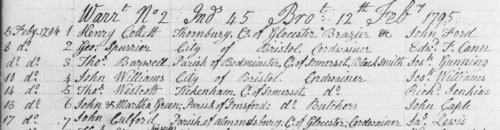 Warr.t No 2 Ind.s 45 Bro.t 12th Feb.y 1795
5 Feby. 1794 1 Henry Collett Thornbury, C. of Glocester Brazier & John Ford
8 do 2 Geo. Spurrier City of Bristol Cordwainer Edw.d J. Cann
do do 3 Tho.s Barwell Parish of Bedminster, C. of Somerset, Black Smith Jos. Gunning
10 do 4 John Williams City of Bristol Cordwainer Jos. Williams
14 do 5 Tho.s Westcott Tickenham, C. of Somerset, do Rich.d Jenkins
15 do 6 John & Martha Green, Parish of do Butchers John Cafle
17 do 7 John Parish of Almondsbury, C. of Glocester, Cordwainer Jas. Lewis